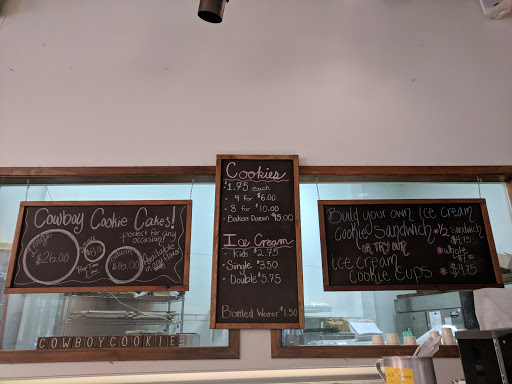 Cowboy Cookie Cakes!
perfect for any
occasion!
large
$26.00
small
medium
$16.00
Cookies
$1.75 each
- 4 for $6.00
- 8 for $10.00
- Bakers Dozen $15.00
Ice Cream
- Kids $2.75
- Single $3.50
- Double $5.75
Bottled Water $1.50
Build your own ice cream
cookie Sandwich
½ Sandwich
$4.75
or try our
whole
ice cream
cookie cups
$4.75
COWBOYCOOKIE